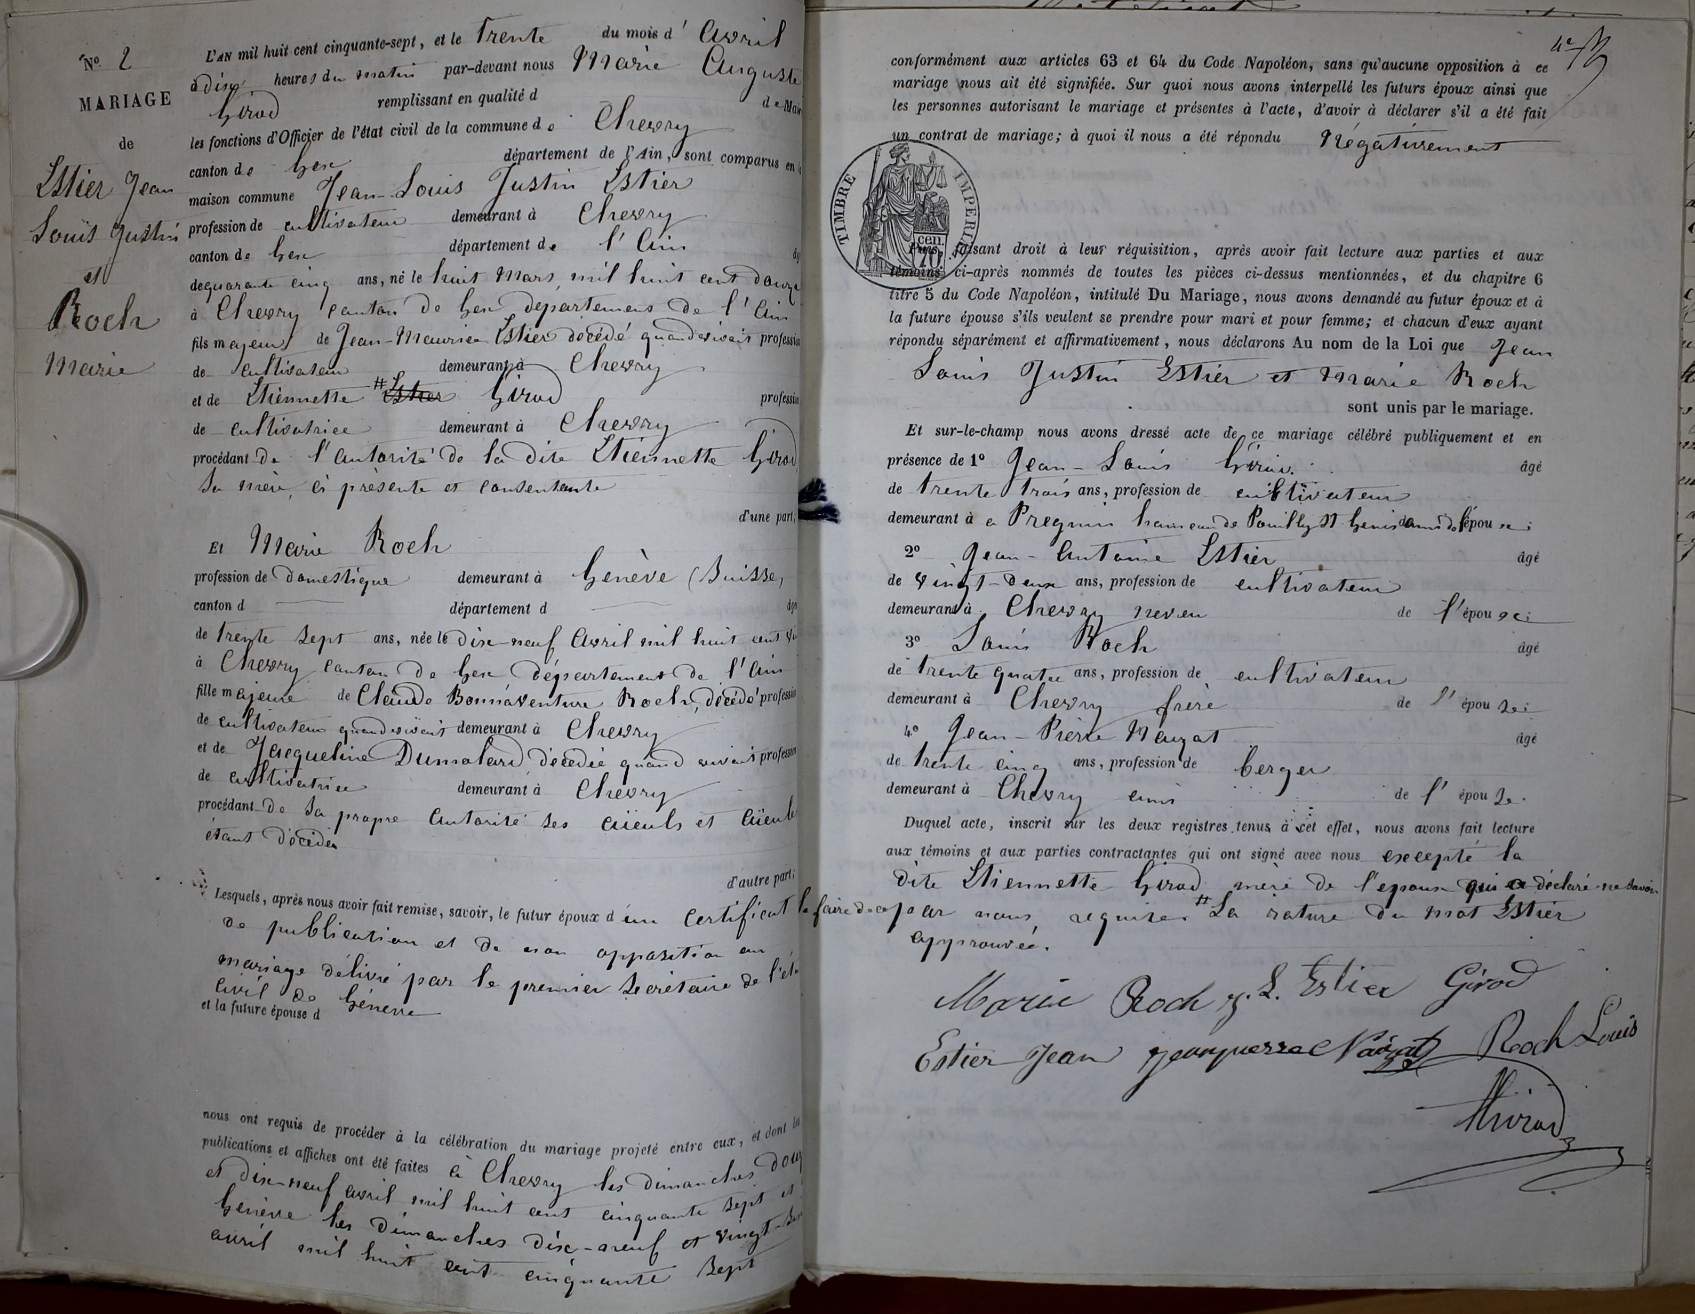 N° 2
MARIAGE
de
Estier Jean
Louis Justin
et
Roch
Marie
L'AN mil huit cent cinquante-sept, et le trente du mois d'avril
à dix heures du matin par-devant nous Marie Auguste
Girod remplissant en qualité d de Mai
les fonctions d'Officier de l'état civil de la commune de Chevry
canton de Gex département de l'Ain, sont comparus en
maison commune Jean-Louis Justin Estier
profession de cultivateur demeurant à Chevry
canton de Gex département de l'Ain
de quarante cinq ans, né le huit Mars mil huit cent douze
à Chevry canton de Gex département de l'Ain
fils majeur de Jean-Maurice Estier décédé quand vivait profession
de cultivateur demeurant à Chevry
et de Etiennette # Estier Girod profession
de cultivatrice demeurant à Chevry
procédant de l'autorité de la dite Etiennette Girod
sa mère, ci présente et consentante
d'une part;
Et Marie Roch
profession de domestique demeurant à Genève (Suisse)
canton d département d
de trente sept ans, née le dix-neuf avril mil huit cent
à Chevry canton de Gex département de l'Ain
fille majeure de Claude Bonnaventure Roch, décédé profession
de cultivateur quand vivait demeurant à Chevry
et de Jacqueline Dumolard décédée quand vivait profession
de cultivatrice demeurant à Chevry
procédant de sa propre autorité ses aïeuls et aïeules
étant décédés
d'autre part;
Lesquels, après nous avoir fait remise, savoir, le futur époux d'un certificat
de publication et de non opposition au
mariage délivré par le premier Secrétaire de l'état
civil de Génève
et la future épouse d
nous ont requis de procéder à la célébration du mariage projeté entre eux, et dont les
publications et affiches ont été faites à Chevry les dimanches douze
et dix-neuf avril mil huit cent cinquante sept et à
Genève les dimanches dix-neuf et vingt-six
avril mil huit cent cinquante sept
conformément aux articles 63 et 64 du Code Napoléon, sans qu'aucune opposition à ce
mariage nous ait été signifiée. Sur quoi nous avons interpellé les futurs époux ainsi que
les personnes autorisant le mariage et présentes à l'acte, d'avoir à déclarer s'il a été fait
un contrat de mariage; à quoi il nous a été répondu Négativement
TIMBRE IMPERIAL
cen.
70
Puis, faisant droit à leur réquisition, après avoir fait lecture aux parties et aux
témoins ci-après nommés de toutes les pièces ci-dessus mentionnées, et du chapitre 6
titre 5 du Code Napoléon, intitulé Du Mariage, nous avons demandé au futur époux et à
la future épouse s'ils veulent se prendre pour mari et pour femme; et chacun d'eux ayant
répondu séparément et affirmativement, nous déclarons Au nom de la Loi que Jean
Louis Justin Estier et Marie Roch
sont unis par le mariage.
Et sur-le-champ nous avons dressé acte de ce mariage célébré publiquement et en
présence de 1° Jean-Louis Girod âgé
de trente trois ans, profession de cultivateur
demeurant à à Pregnin hameau de Pouilly St Genis ami de l'époux;
2° Jean-Antoine Estier âgé
de vingt-deux ans, profession de cultivateur
demeurant à Chevry neveu de l'époux;
3° Louis Roch âgé
de trente quatre ans, profession de cultivateur
demeurant à Chevry frère de l'épouse;
4° Jean-Pierre Nauzat âgé
de trente cinq ans, profession de berger
demeurant à Chevry ami de l'épouse.
Duquel acte, inscrit sur les deux registres tenus à cet effet, nous avons fait lecture
aux témoins et aux parties contractantes qui ont signé avec nous excepté la
dite Etiennette Girod mère de l'époux qui a déclaré ne savoir
le faire de ce par nous requise. # La rature du mot Estier
approuvée.
Marie Roch J. L. Estier Girod
Estier Jean jeanpierre Nauzat Roch Louis
Girod